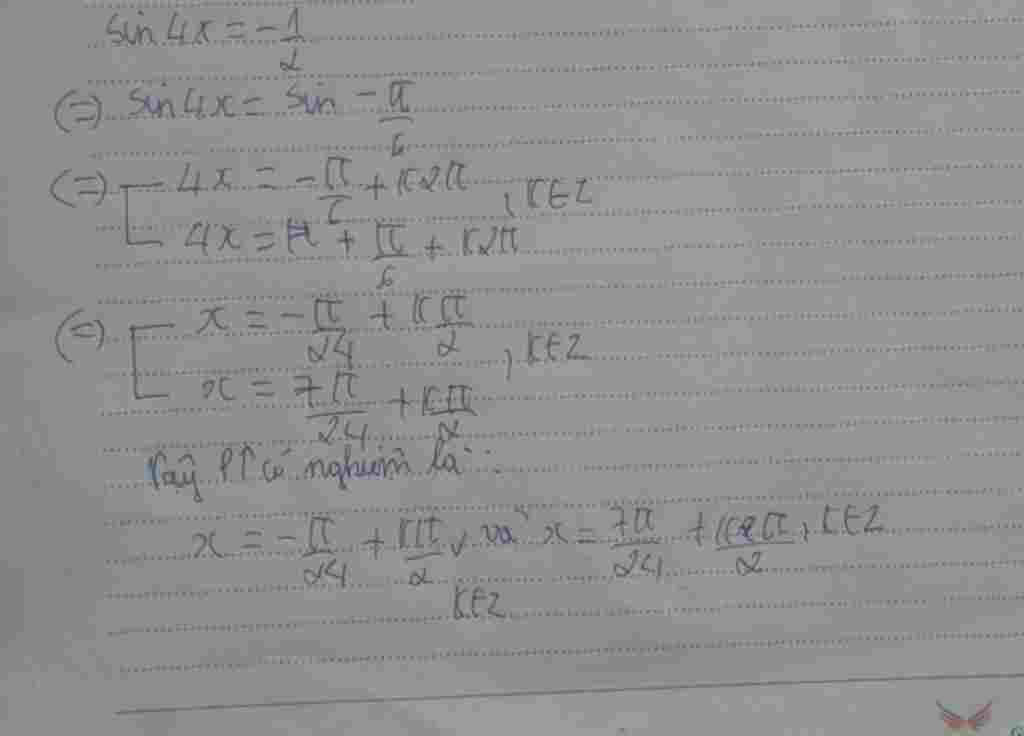 sin 4x = -1/2
(=) sin 4x = sin -π/6
(=) [ 4x = -π/6 + k2π
4x = π + π/6 + k2π , k∈Z
(=) [ x = -π/24 + kπ/2
x = 7π/24 + kπ/2 , k∈Z
Vậy PT có nghiệm là :
x = -π/24 + kπ/2 , và x = 7π/24 + k2π/2 , k∈Z
k∈Z